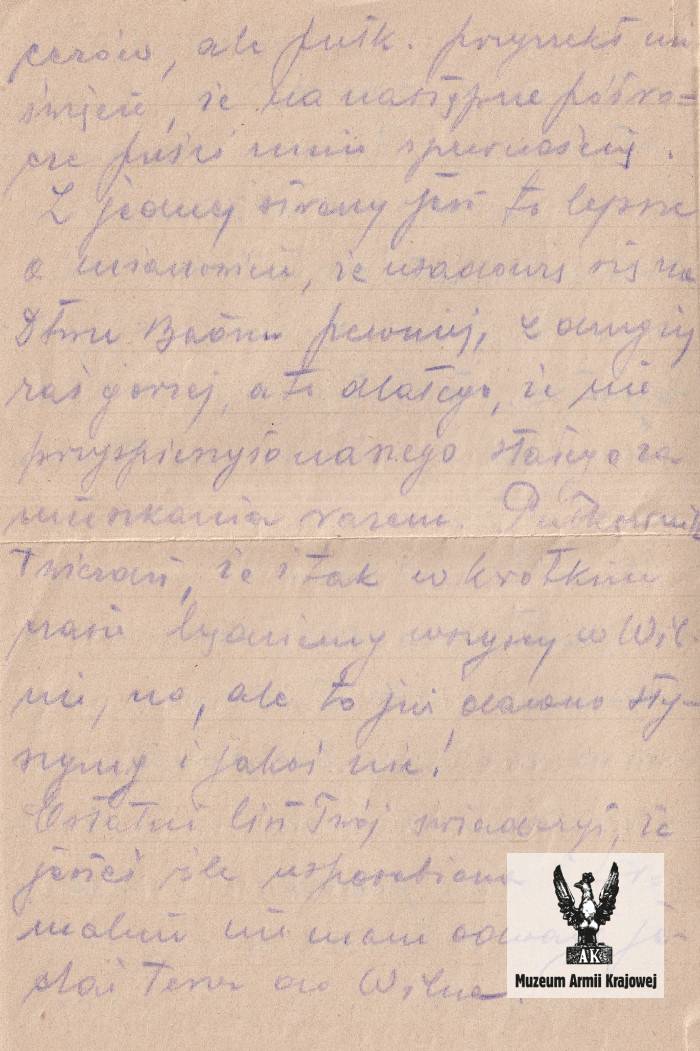 cerów, ale pułk. przyrzekł mi
święcie, że na następne półro=
cze puści mnie z pewnością.
Z jednej strony jest to lepsze
a mianowicie, że usadowię się na
D-twu Baonu pewniej, z drugiej
zaś gorzej, a to dlatego, że nie
przyspieszyło naszego stałego za
mieszkania razem. Pułkownik
twierdzi, że i tak w krótkim
czasie będziemy wszyscy w Wil-
nie, no, ale to już dawno sły-
szymy i jakoś nic!
Ostatni list Twój świadczył, że
jesteś źle usposobiona
malnie nie mam odwagi je-
chać teraz do Wilna.
AK
Muzeum Armii Krajowej